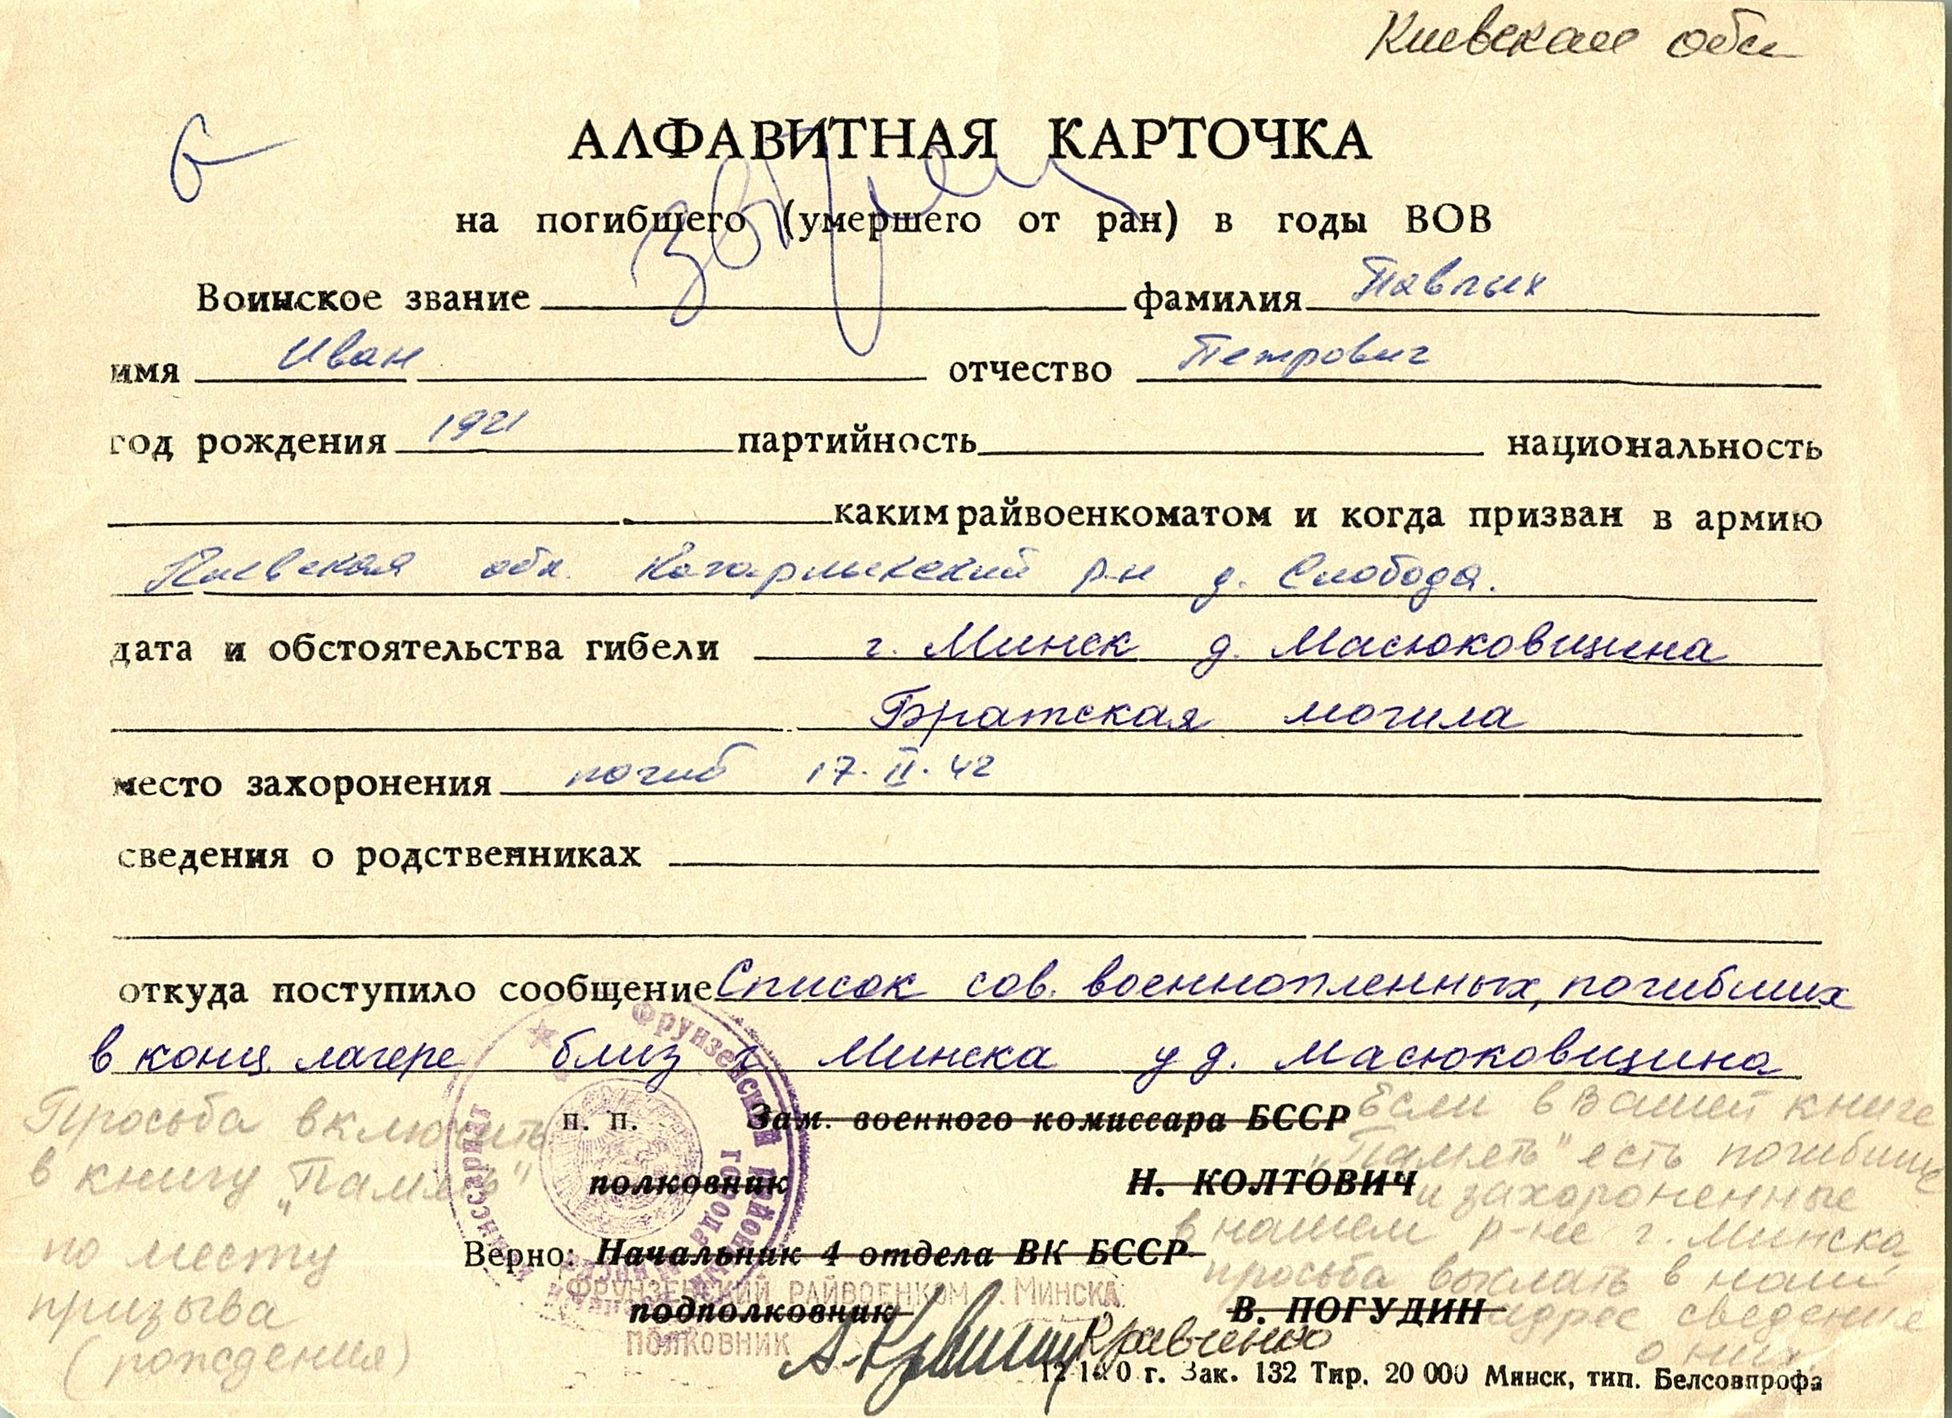 Киевская обл
АЛФАВИТНАЯ КАРТОЧКА
на погибшего (умершего от ран) в годы ВОВ
Воинское звание фамилия Павлык
имя Иван отчество Петрович
год рождения 1921 партийность национальность
каким райвоенкоматом и когда призван в армию
Киевская обл. Кагарлыкский р-н д. Слобода.
дата и обстоятельства гибели г. Минск д. Масюковщина
Братская могила
место захоронения погиб 17.II.42
сведения о родственниках
откуда поступило сообщение Список сов. военнопленных, погибших
в конц. лагере близ г. Минска у д. Масюковщина
п. п. Зам. военного комиссара БССР
полковник Н. КОЛТОВИЧ
Верно: Начальник 4 отдела ВК БССР
подполковник В. ПОГУДИН
ФРУНЗЕНСКИЙ РАЙВОЕНКОМ г. МИНСКА
ПОЛКОВНИК Кравченко
Просьба включить
в книгу „Память"
по месту
призыва
(рождения)
Если в Вашей книге
„Память" есть погибшие
и захороненные
в нашем р-не г. Минска,
просьба выслать в наш
адрес сведения
о них.
г. Зак. 132 Тир. 20 000 Минск, тип. Белсовпрофа